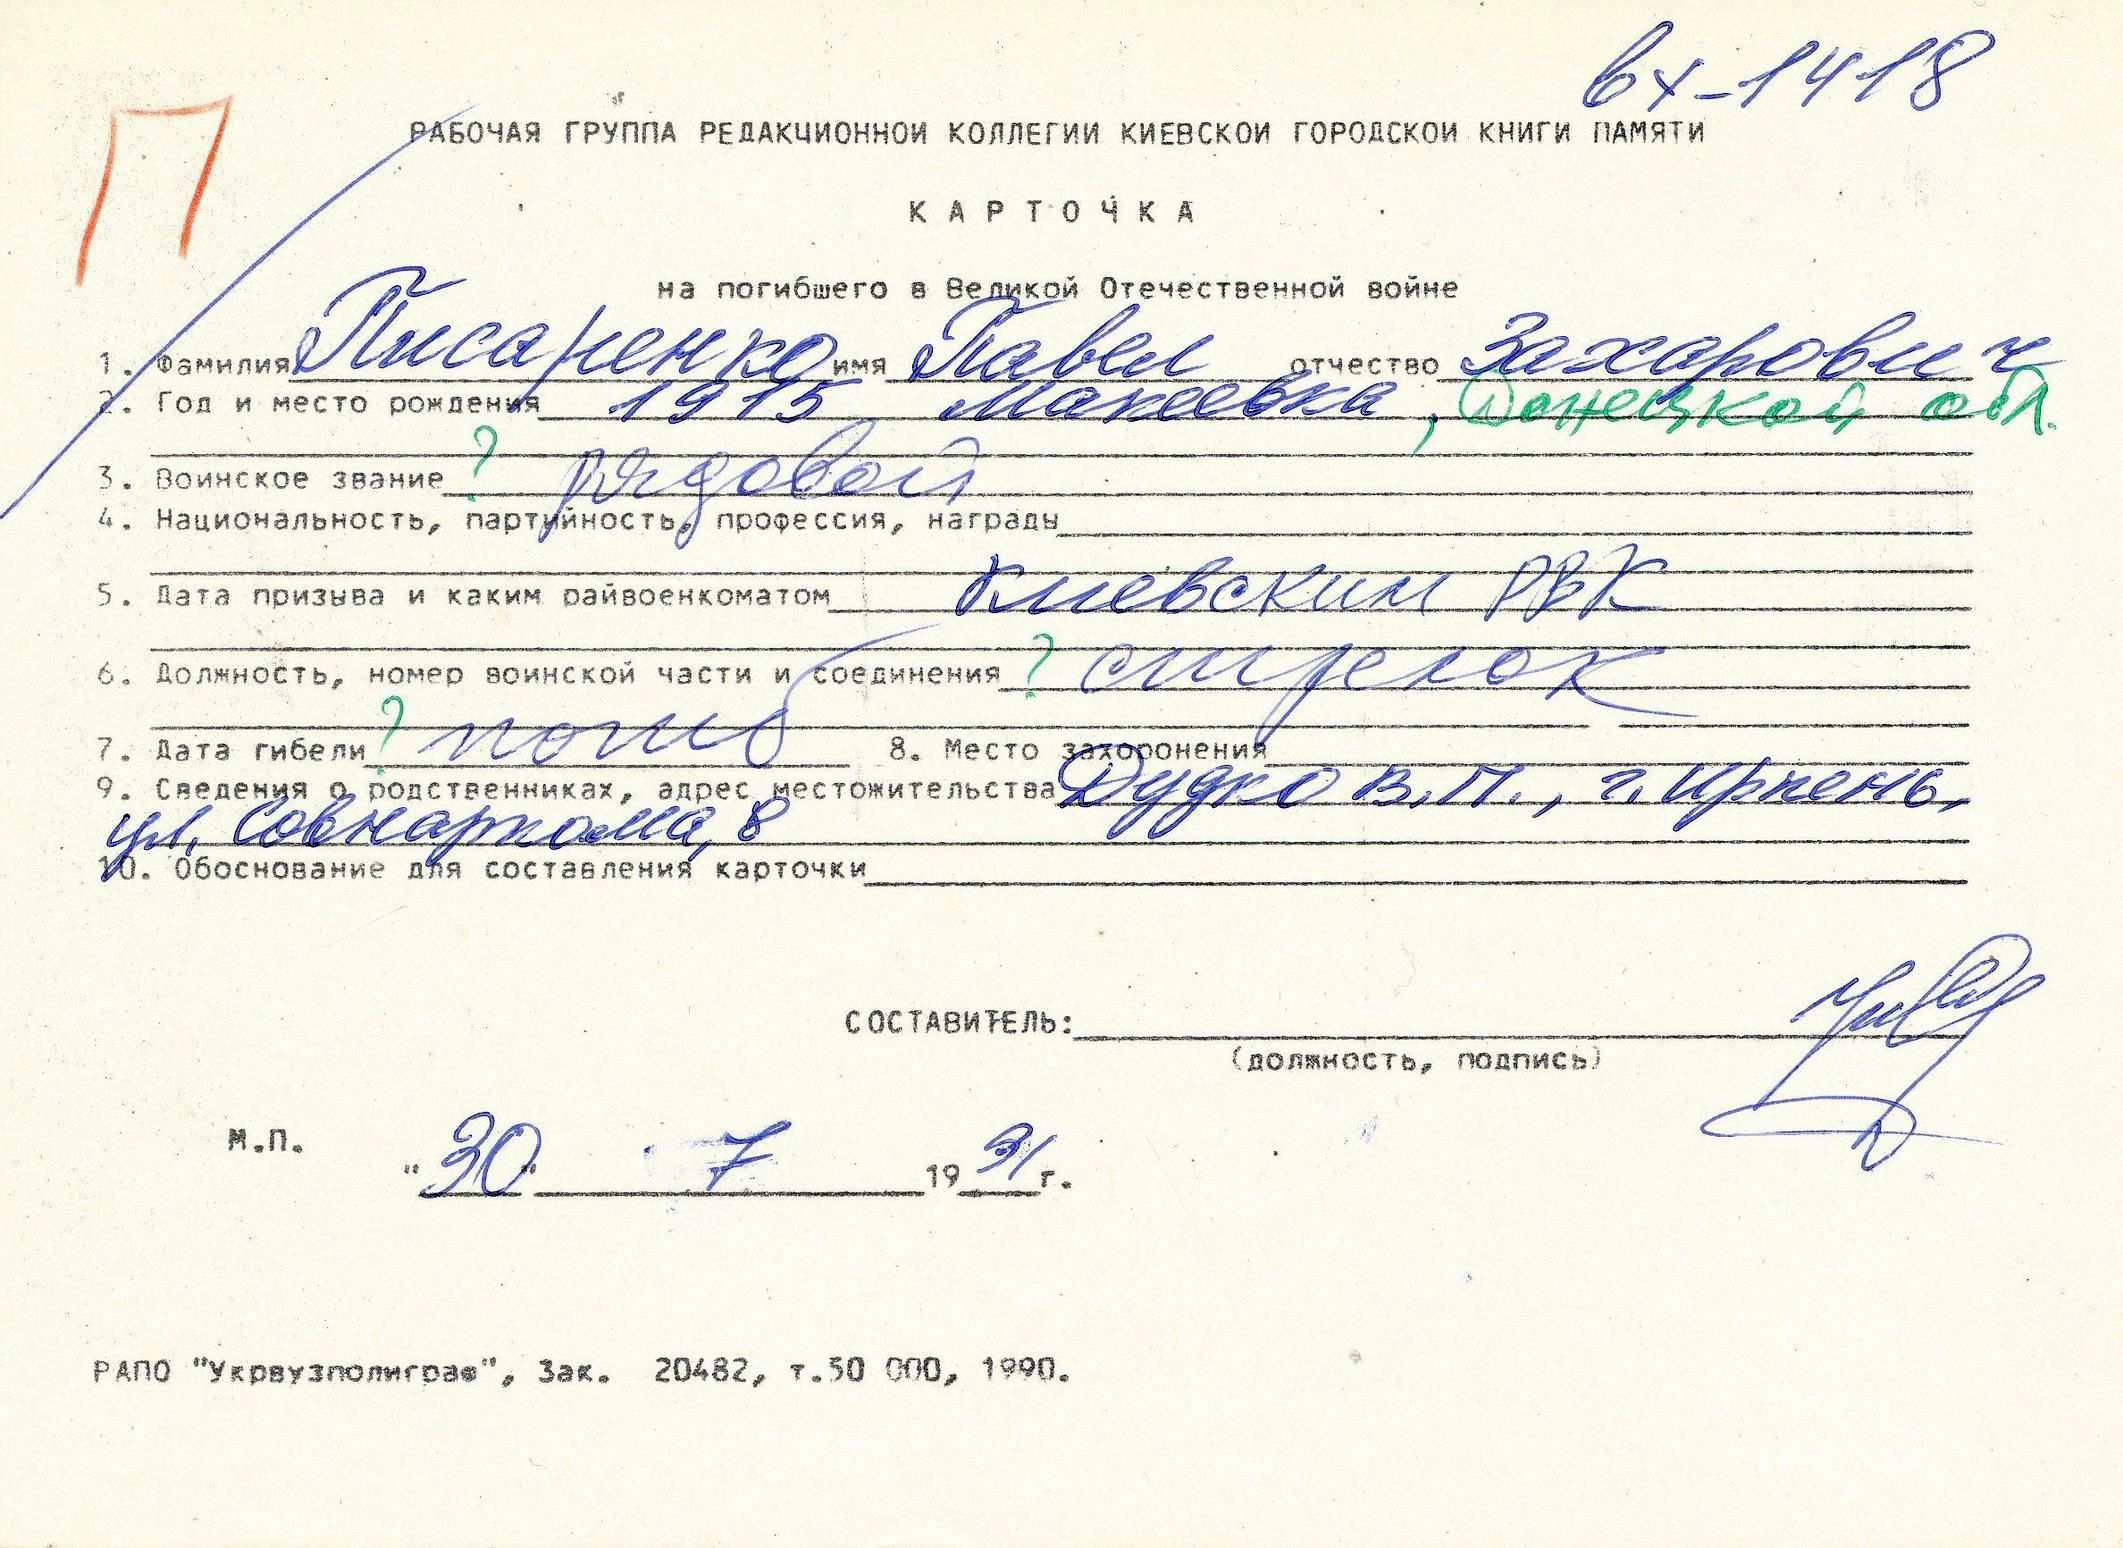 вх-1418
П
РАБОЧАЯ ГРУППА РЕДАКЦИОННОЙ КОЛЛЕГИИ КИЕВСКОЙ ГОРОДСКОЙ КНИГИ ПАМЯТИ
КАРТОЧКА
на погибшего в Великой Отечественной войне
1. Фамилия Писаренко имя Павел отчество Захарович
2. Год и место рождения 1915 Макеевка, Донецкой обл.
3. Воинское звание ? рядовой
4. Национальность, партийность, профессия, награды
5. Дата призыва и каким райвоенкоматом Киевским РВК
6. Должность, номер воинской части и соединения ? стрелок
7. Дата гибели ? погиб 8. Место захоронения
9. Сведения о родственниках, адрес местожительства Дудко В.П., г. Ирпень,
ул. Совнаркома, 8
10. Обоснование для составления карточки
СОСТАВИТЕЛЬ:
(должность, подпись)
М.П.
"30" 7 1991 г.
РАПО "Укрвузполиграф", Зак. 20482, т.50 000, 1990.